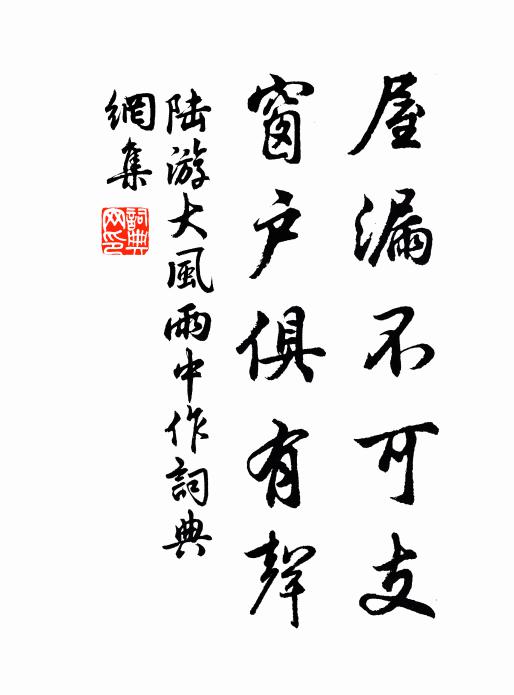 屋漏不可支
窗户俱有聲
陆游大風雨中作詞典
網集
詞典网印